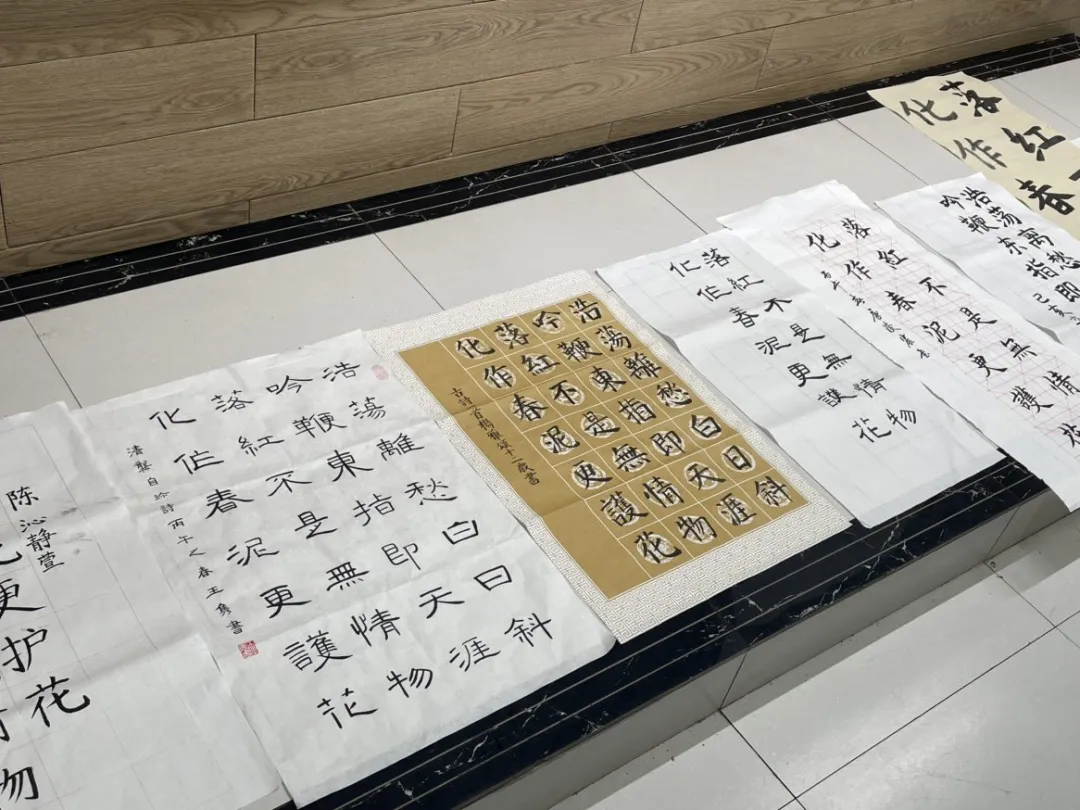 陈沁静萱
更护花
物
浩蕩離愁白日斜
吟鞭東指即天涯
落紅不是無情物
化作春泥更護花
清龔自珍詩丙午之春王書
浩蕩離愁白日斜
吟鞭東指即天涯
落紅不是無情物
化作春泥更護花
古詩一首楊雅頌十二歲書
落紅不是無情物
化作春泥更護花
落紅不是無情
化作春泥更護花
浩荡离愁
吟鞭东指即
己亥
落红
化作春